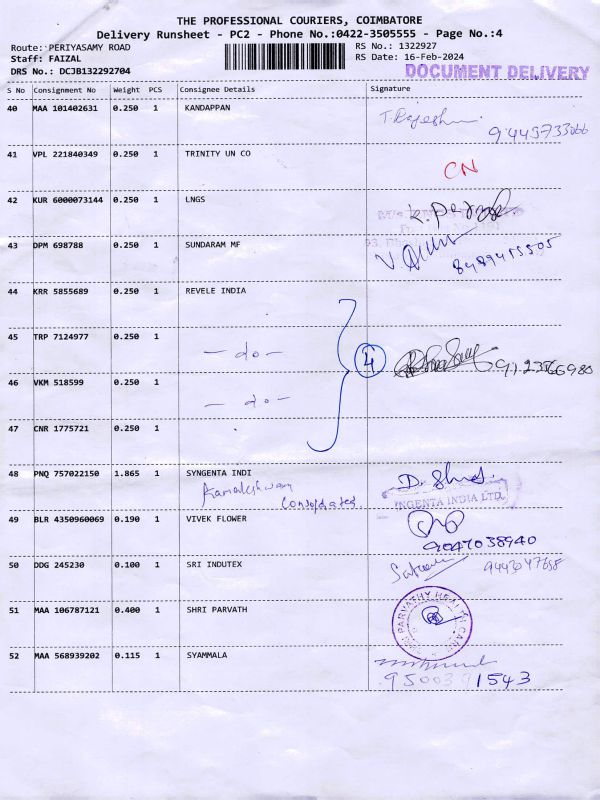 THE PROFESSIONAL COURIERS, COIMBATORE
Delivery Runsheet - PC2 - Phone No.:0422-3505555 - Page No.:4
Route: PERIYASAMY ROAD RS No.: 1322927
Staff: FAIZAL RS Date: 16-Feb-2024
DRS No.: DCJB132292704 DOCUMENT DELIVERY
S No Consignment No Weight PCS Consignee Details Signature
40 MAA 101402631 0.250 1 KANDAPPAN
T. Rajesh
9445733066
41 VPL 221840349 0.250 1 TRINITY UN CO
CN
42 KUR 6000073144 0.250 1 LNGS
43 DPM 698788 0.250 1 SUNDARAM MF
8489455505
44 KRR 5855689 0.250 1 REVELE INDIA
45 TRP 7124977 0.250 1
- do -
4
46 VKM 518599 0.250 1
- do -
47 CNR 1775721 0.250 1
48 PNQ 757022150 1.865 1 SYNGENTA INDI
Kamaleshwary
NGENTA INDIA LTD.
49 BLR 4350960069 0.190 1 VIVEK FLOWER
9047038940
50 DDG 245230 0.100 1 SRI INDUTEX
51 MAA 106787121 0.400 1 SHRI PARVATH
PARVATHY HEALTH CARE
52 MAA 568939202 0.115 1 SYAMMALA
9500391543